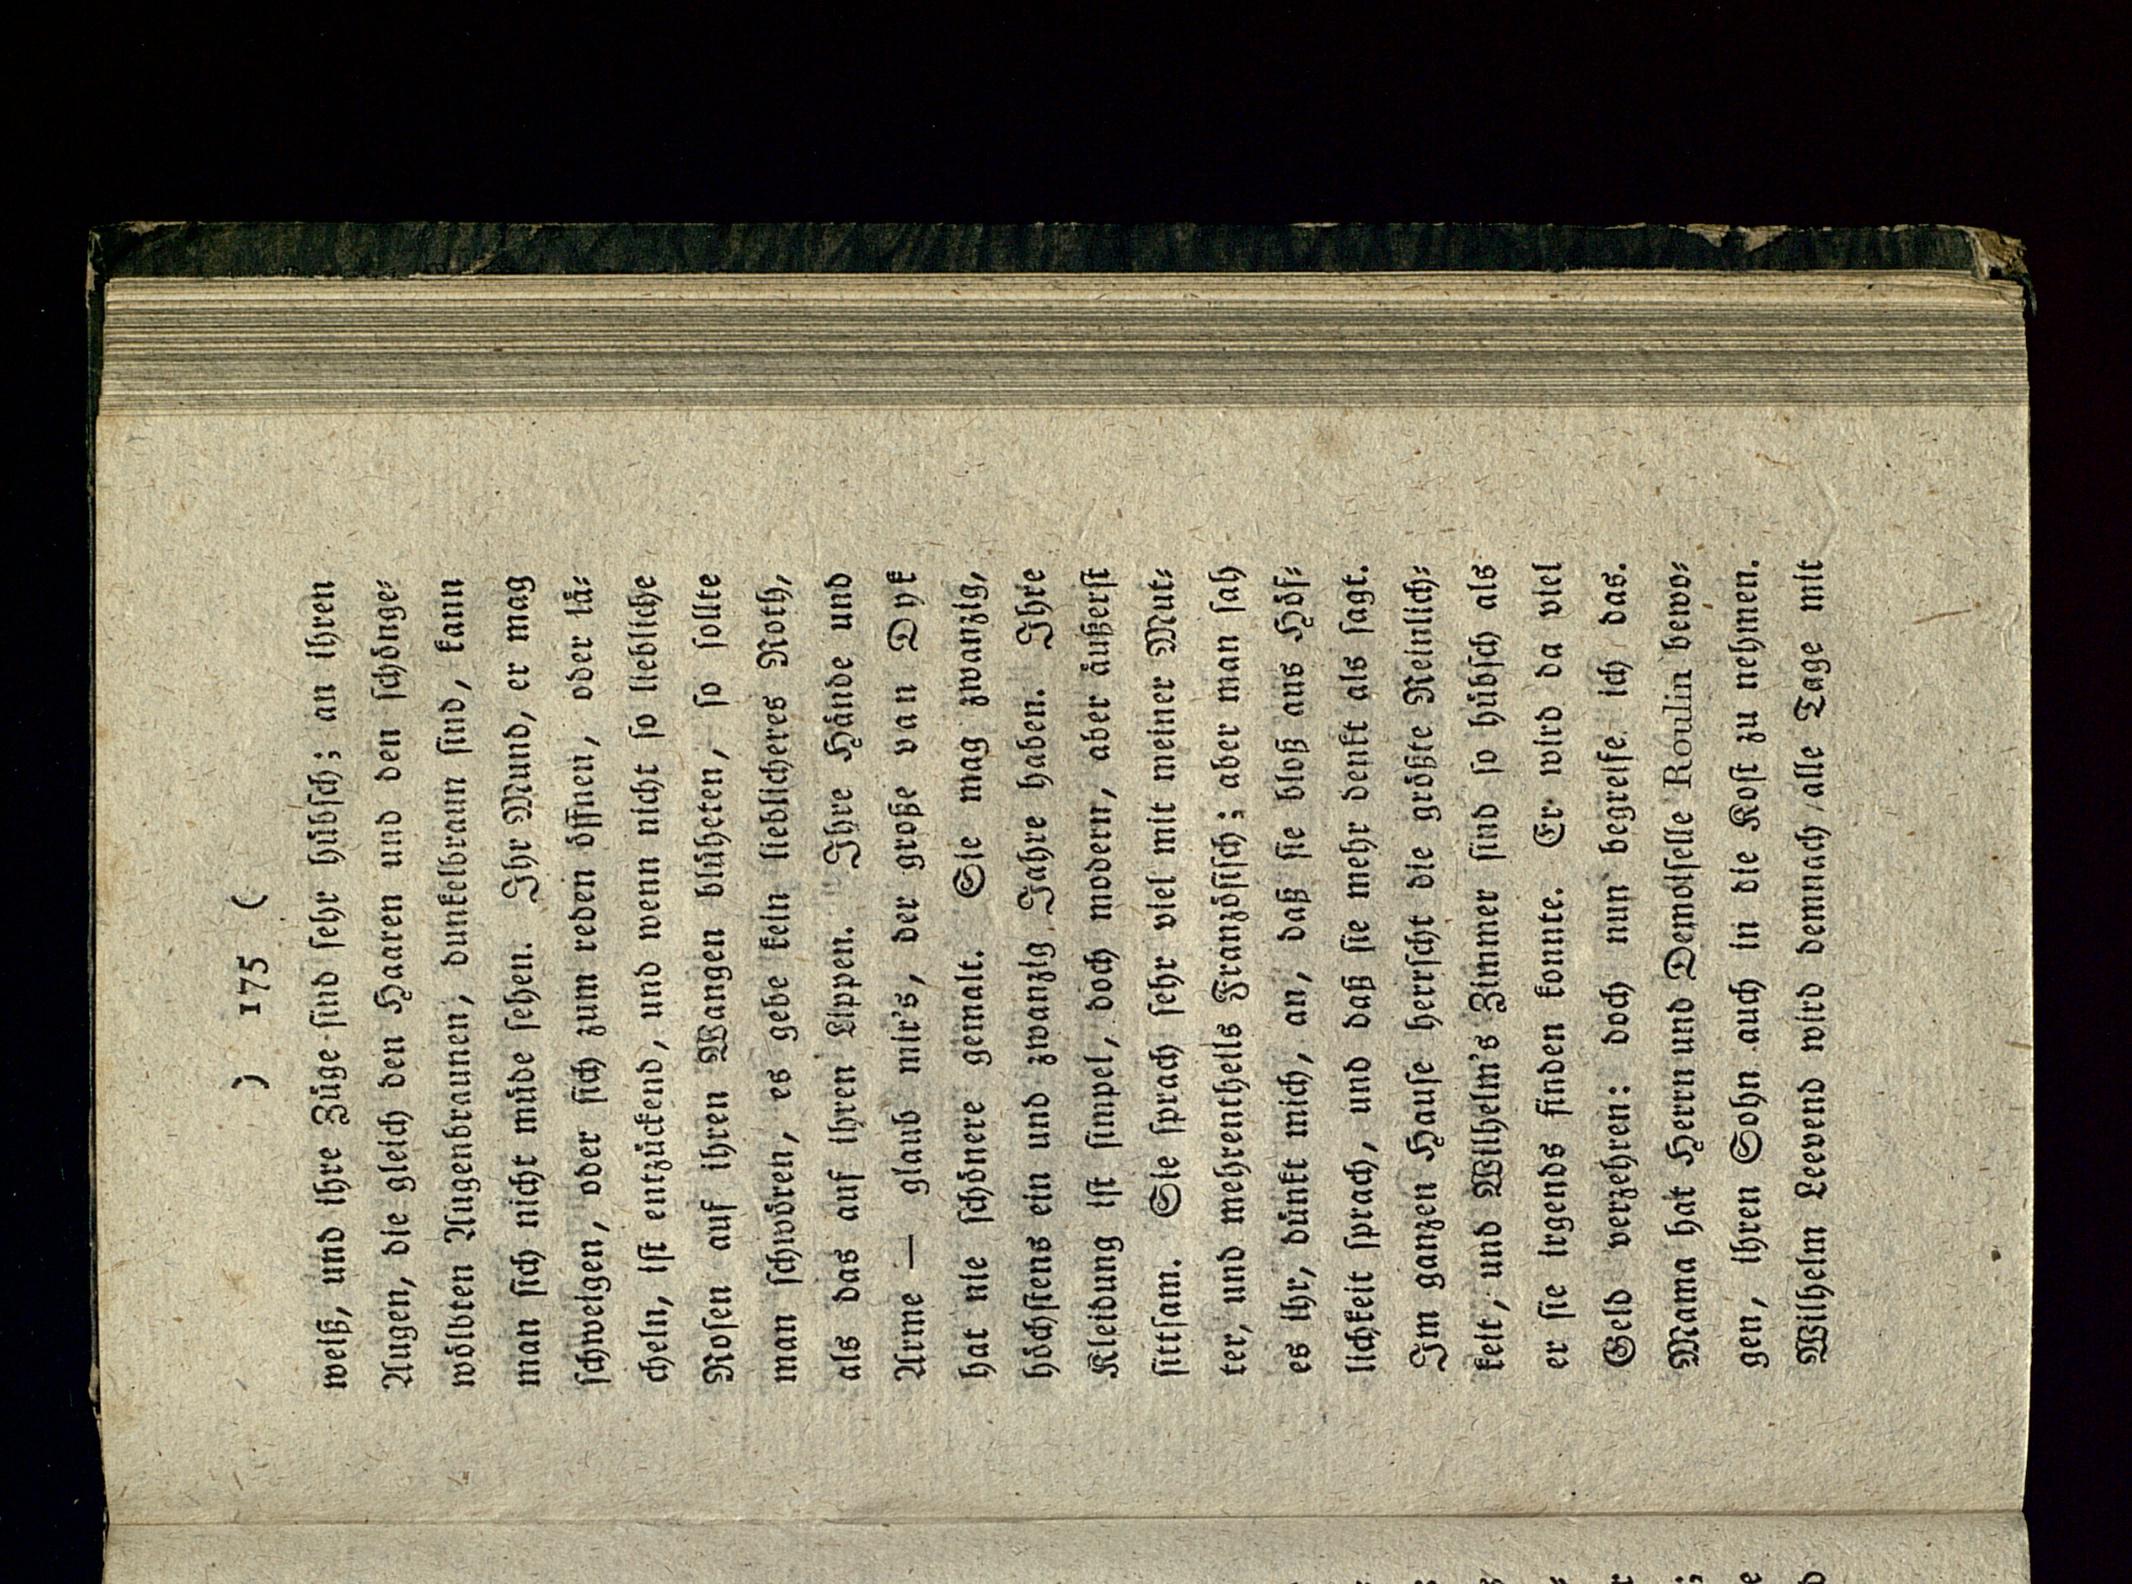 ) 175 (
weiß, und ihre Züge sind sehr hübsch; an ihren
Augen, die gleich den Haaren und den schönge⸗
wölbten Augenbraunen, dunkelbraun sind, kann
man sich nicht müde sehen. Ihr Mund, er mag
schweigen, oder sich zum reden öffnen, oder lä⸗
cheln, ist entzückend, und wenn nicht so liebliche
Rosen auf ihren Wangen blüheten, so sollte
man schwören, es gebe kein lieblicheres Roth,
als das auf ihren Lippen. Ihre Hände und
Arme — glaub mir's, der große van Dyk
hat nie schönere gemalt. Sie mag zwanzig,
höchstens ein und zwanzig Jahre haben. Ihre
Kleidung ist simpel, doch modern, aber äußerst
sittsam. Sie sprach sehr viel mit meiner Mut⸗
ter, und mehrentheils Französisch; aber man sah
es ihr, dünkt mich, an, daß sie bloß aus Höf⸗
lichkeit sprach, und daß sie mehr denkt als sagt.
Im ganzen Hause herrscht die größte Reinlich⸗
keit, und Wilhelm's Zimmer sind so hübsch als
er sie irgends finden konnte. Er wird da viel
Geld verzehren: doch nun begreife ich das.
Mama hat Herrn und Demoiselle Roulin bewo⸗
gen, ihren Sohn auch in die Kost zu nehmen.
Wilhelm Leevend wird demnach alle Tage mit